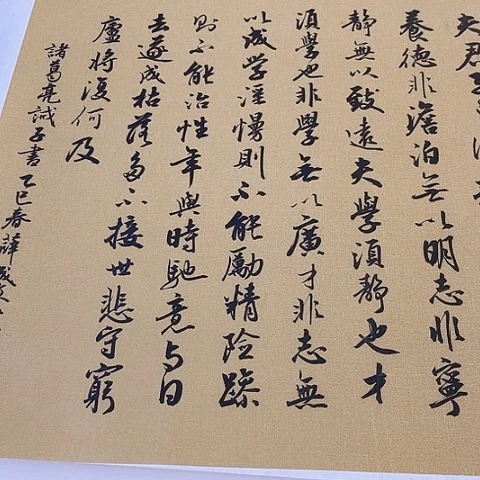 夫君子
養德非澹泊無以明志非寧
靜無以致遠夫學須靜也才
須學也非學無以廣才非志無
以成学淫慢則不能勵精險躁
則不能治性年與時馳意与日
去遂成枯落多不接世悲守窮
廬將復何及
諸葛亮誡子書乙巳春薛成